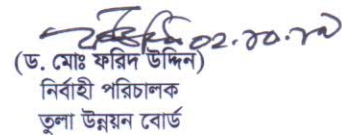 ০২.১০.১৭
(ড. মোঃ ফরিদ উদ্দিন)
নির্বাহী পরিচালক
তুলা উন্নয়ন বোর্ড